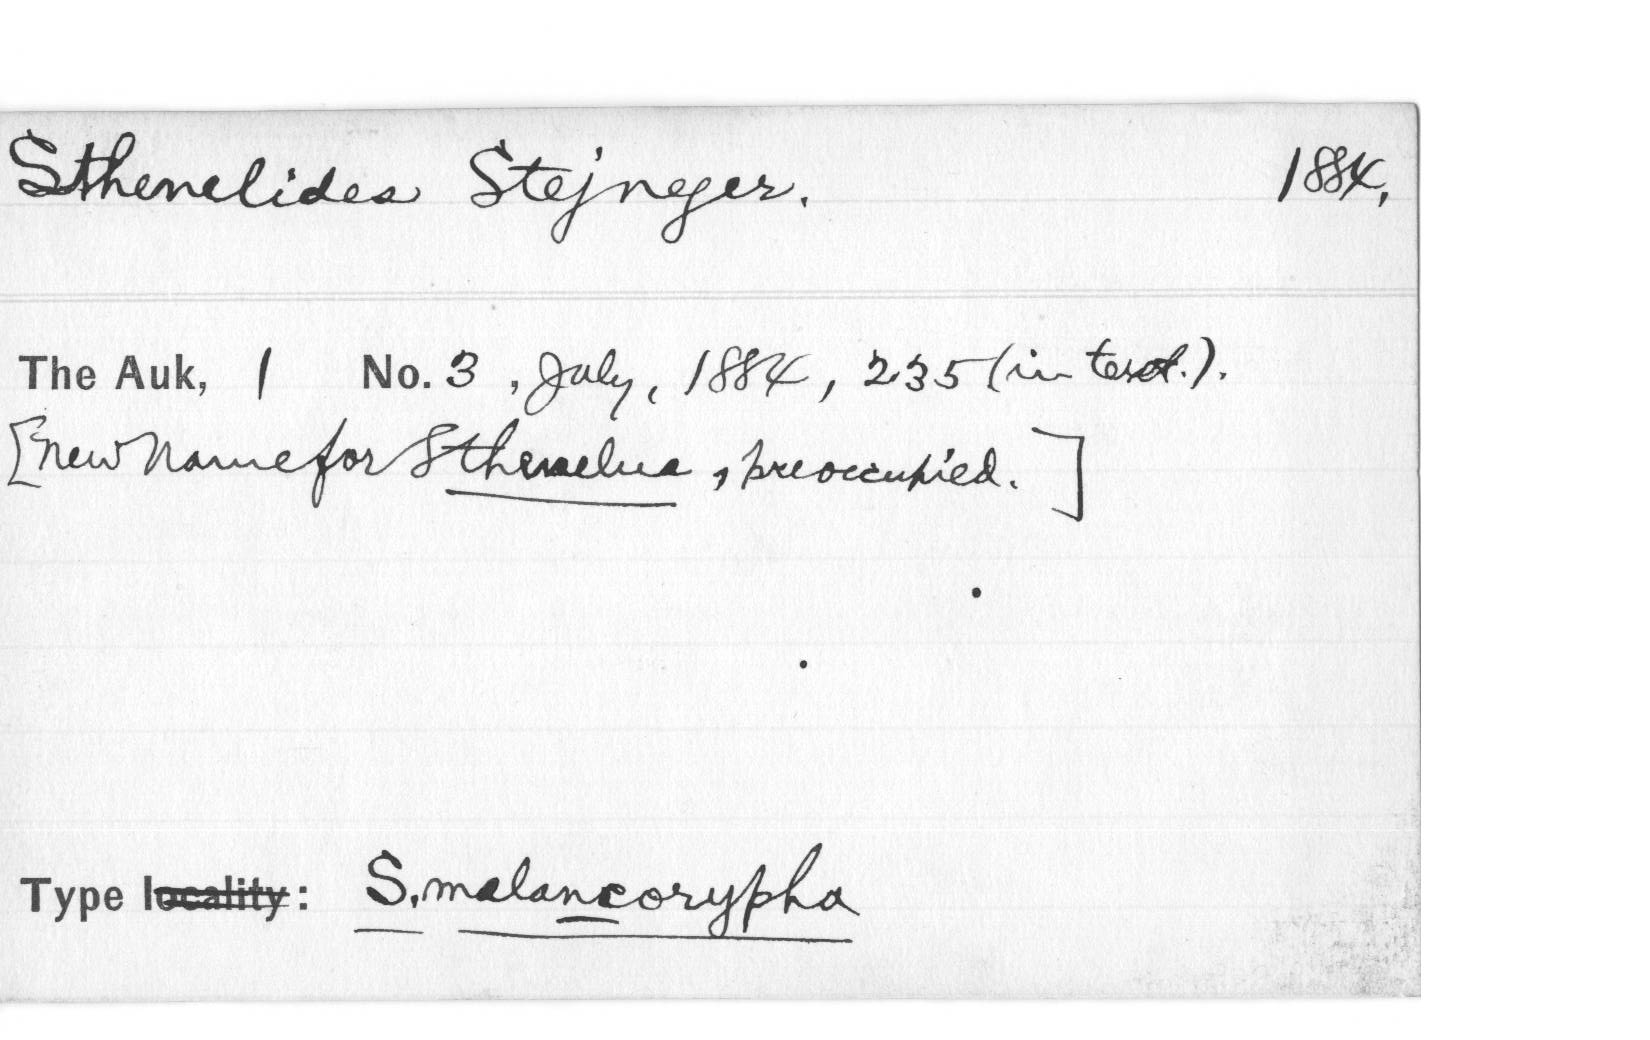 Sthenelides Stejneger. 1884,
The Auk, 1 No. 3, July, 1884, 235 (in text.).
[New Name for Sthenelus, preoccupied.]
Type locality: S. melancorypha